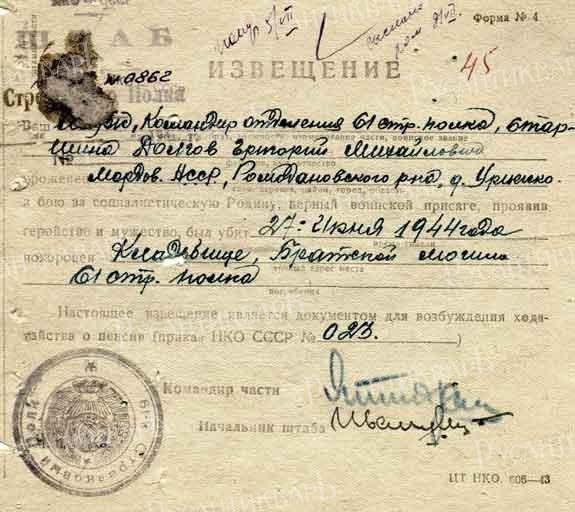 Форма № 4
ШТАБ
ИЗВЕЩЕНИЕ
45
№ 0862
Полка
Ваш Командир отделения 61 стр. полка, стар-
шина Долгов Григорий Михайлович
Мордов. АССР, Ромодановского р-на, д.
в бою за социалистическую Родину, верный воинской присяге, проявив
геройство и мужество, был убит 27 Июня 1944 года
похоронен Кладбище, Братской могиле
61 стр. полка
погребения
Настоящее извещение является документом для возбуждения хода-
тайства о пенсии (приказ НКО СССР № 023.)
Командир части
Начальник штаба
61-й Стрелковый полк
ЦТ НКО. 606—43